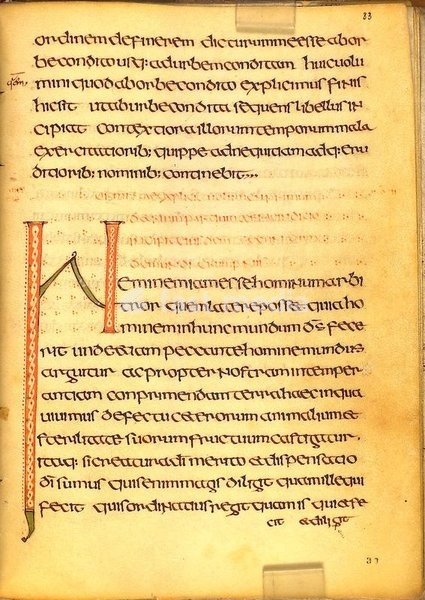 83
ordinem definerem dicturum me esse ab or
be condito usq; ad urbem conditam huic uolu
mini quod ab orbe condito explicuimus finis
hic sit ut ab urbe condita sequens libellus in
cipiat contextiora illorum temporum mala
exercitatiorib; quippe ad nequitiam adq; eru
ditiorib; hominib; continebit
Neminem iam esse hominum arbi
tror quem latere possit quia ho
minem in hunc mundum ds fece
rit unde etiam peccante homine mundus
arguitur ac propter nostram intemper
antiam conprimendam terra haec in qua
uiuimus defectu ceterorum animalium et
sterilitate suorum fructuum castigatur
itaq; si creatura di merito et dispensatio
di sumus quis enim magis diligit quam ille qui
fecit quis ordinatius regit quam is qui et fe
cit et diligit